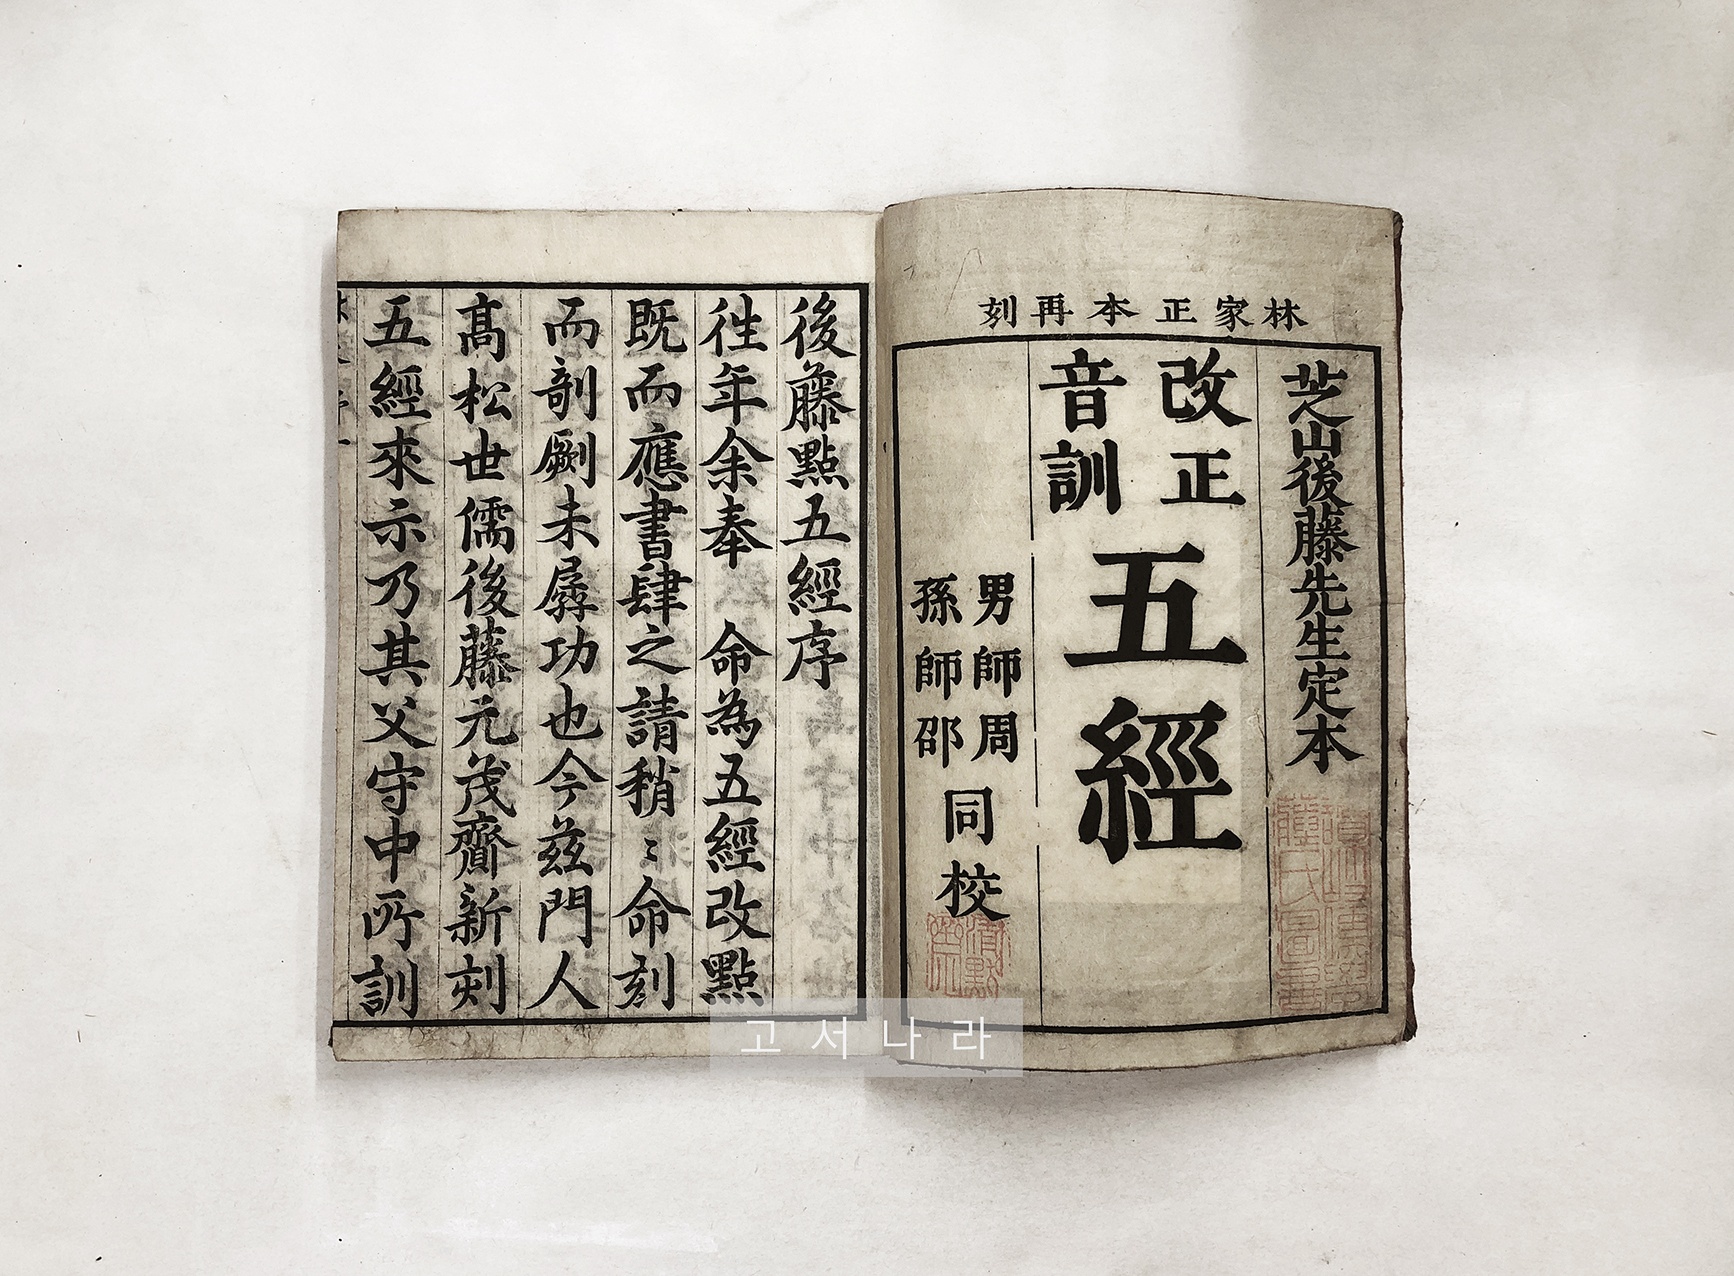 林家正本再刻
芝山後藤先生定本
改正
音訓
五經
男師周
孫師邵
同校
後藤點五經序
徃年余奉 命為五經改點
既而應書肆之請稍〻命刻
而剞劂未孱功也今茲門人
髙松世儒後藤元茂齎新刻
五經來示乃其父守中所訓
고서나라